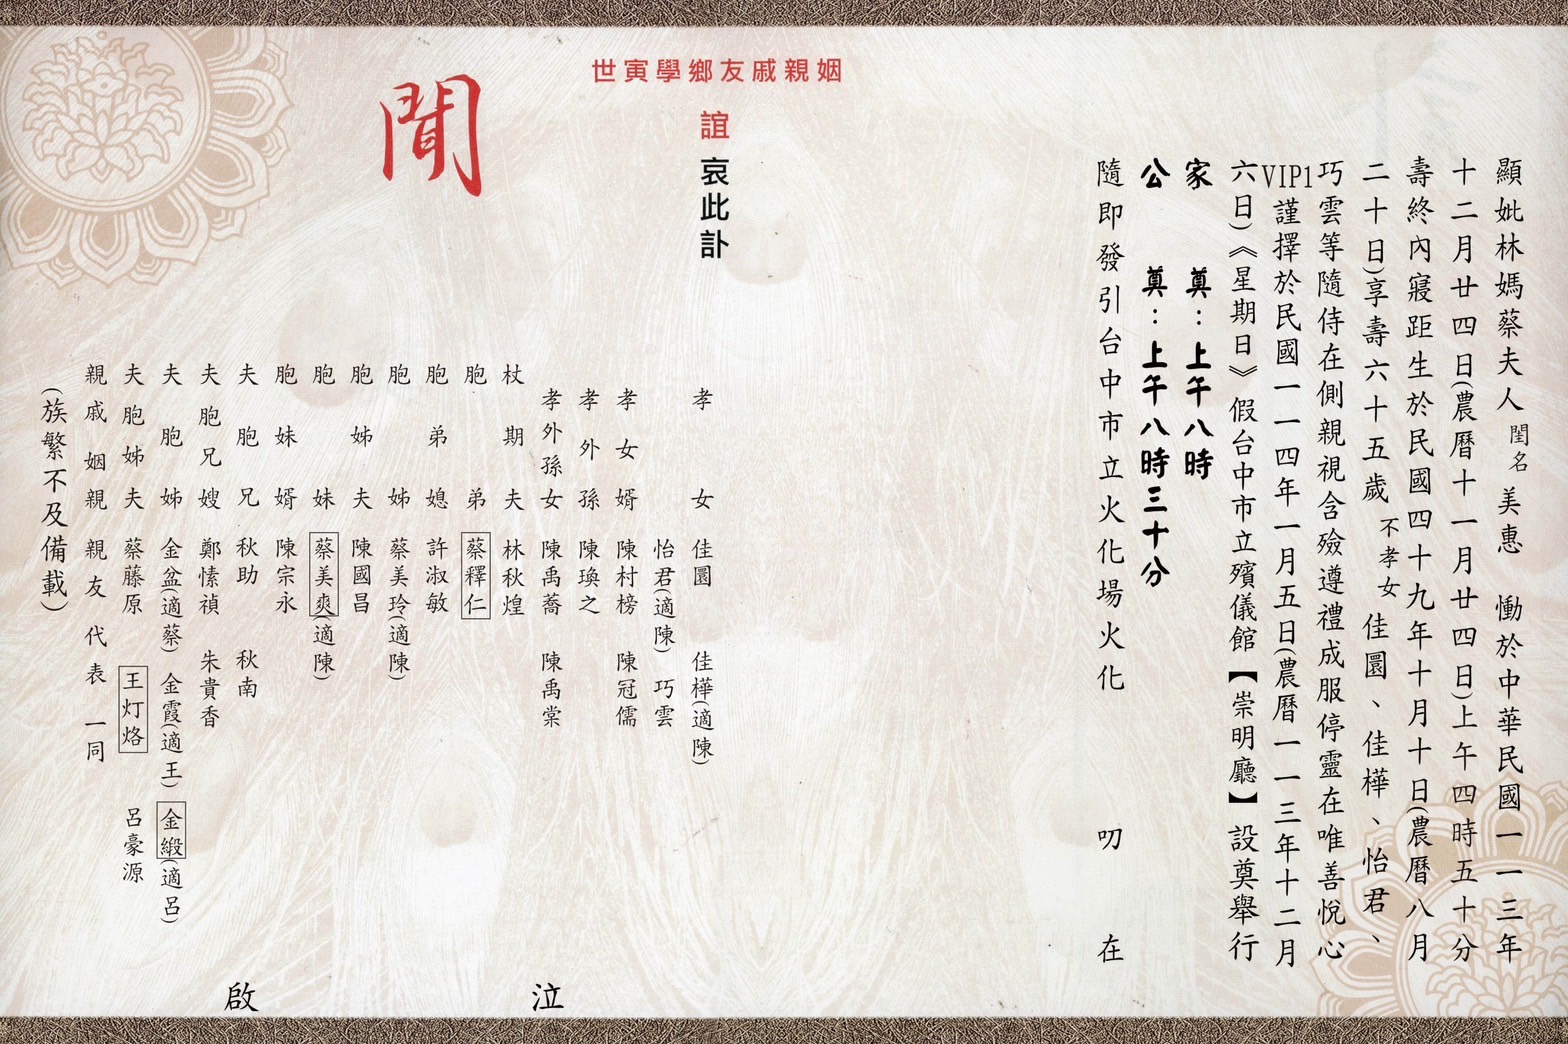 顯妣林媽蔡夫人閨名美惠 慟於中華民國一一三年
十二月廿四日(農曆十一月廿四日)上午四時五十分
壽終內寢距生於民國四十九年十月十日(農曆八月
二十日)享壽六十五歲 不孝女 佳圜、佳樺、怡君、
巧雲等隨侍在側親視含殮遵禮成服停靈在唯善悅心
VIP1謹擇於民國一一四年一月五日(農曆一一三年十二月
六日)《星期日》假台中市立殯儀館【崇明廳】設奠舉行
家 奠:上午八時
公 奠:上午八時三十分
隨即發引台中市立火化場火化 叨 在
姻親戚友鄉學寅世
誼哀此訃
聞
孝女 佳圜 佳樺(適陳)
怡君(適陳) 巧雲
孝女婿 陳村榜 陳冠儒
孝外孫 陳瑍之
孝外孫女 陳禹蕎 陳禹棠
杖期夫 林秋煌
胞弟 蔡釋仁
胞弟媳 許淑敏
胞姊 蔡美玲(適陳)
胞姊夫 陳國昌
胞妹 蔡美爽(適陳)
胞妹婿 陳宗永
夫胞兄 秋助 秋南
夫胞兄嫂 鄭愫禎 朱貴香
夫胞姊 金盆(適蔡) 金霞(適王) 金緞(適呂)
夫胞姊夫 蔡藤原 王灯烙 呂豪源
親戚姻親親友代表一同
(族繁不及備載)
泣 啟